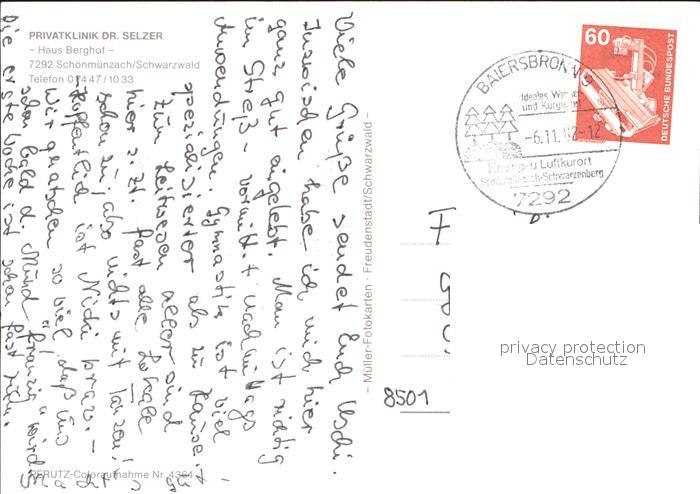 PRIVATKLINIK DR. SELZER
– Haus Berghof –
7292 Schönmünzach/Schwarzwald
Telefon 0 74 47 / 10 33
Viele Grüße sendet Euch Uschi.
Inzwischen habe ich mich hier
ganz gut eingelebt. Man ist richtig
im Streß - vormitt. + nachmittags
Anwendungen. Gymnastik ist viel
spezialisierter als zu Hause.
Zum Leidwesen aller sind
hier z. Zt. fast alle Lokale
schon zu, also nichts mit Tanzen!
Hoffentlich ist Nicki brav. –
Wir quatschen so viel, daß uns
schon bald d. Mund
Die erste Woche ist schon fast rum.
– Müller-Fotokarten · Freudenstadt/Schwarzwald –
PERUTZ-Coloraufnahme Nr. 4364
60
DEUTSCHE BUNDESPOST
BAIERSBRONN
Ideales
und Kurgebiet
-6.11.82-12
Kneipp- u Luftkurort
Schönmünzach-Schwarzenberg
7292
8501
privacy protection
Datenschutz